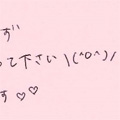 ず
って下さい \(^o^)/
す♡♡